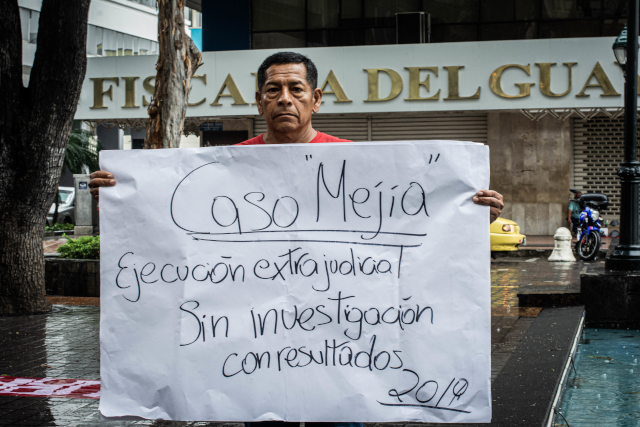 FISCALÍA DEL GUA
Caso "Mejía"
Ejecución extrajudicial
Sin investigación
con resultados
2019